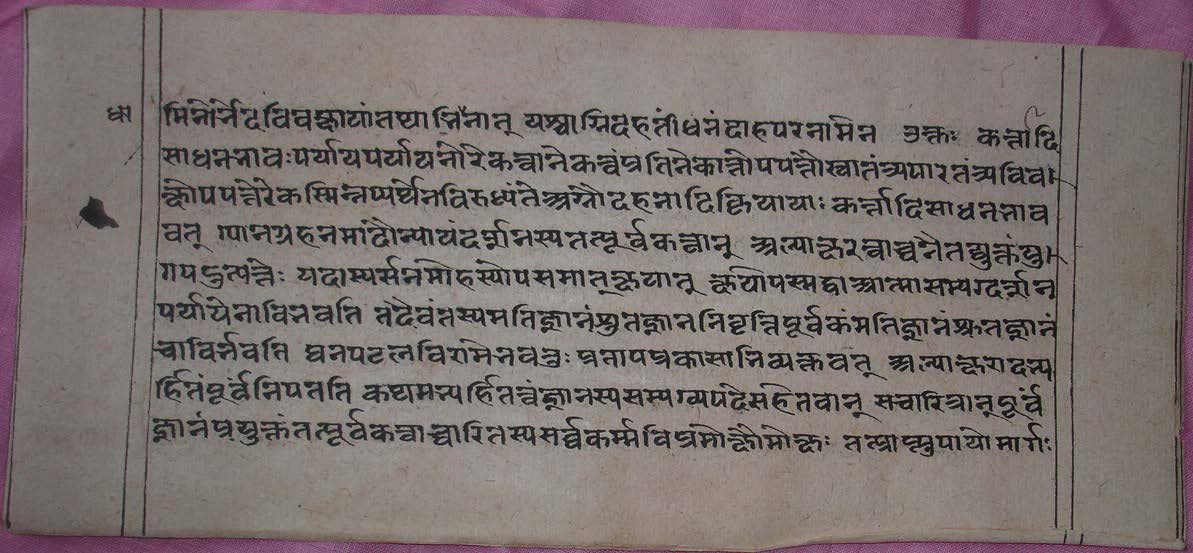 मिनोर्नेद विवक्षायांतथाभिनात् यथाग्निदहतीधनंदाहपरनामेन उक्तः कर्त्तादि
साधनभावःपर्यायपर्यायनोरेकत्वानेकत्वंप्रतिनेकान्तोपपत्तौस्वातंत्र्यपारतंत्र्यविव
क्षोपपत्तेरेकस्मिन्नप्यर्थेनविरुध्यंतेअग्नौदहनादिक्रियायाः कर्त्तादिसाधनभाव
वत् ग्यानग्रहनमादौन्यायंदर्शनस्यतत्पूर्वकत्वात् अल्पाक्षरत्वाच्चनैतद्युक्तंयु
गपदुत्पत्तेः यदास्यर्सनमोहस्योपसमात्क्षयात् क्षयोपस्मद्वाआत्मासम्यग्दर्शन
पर्यायेनाविभवति तदैवंतस्यमतिज्ञानंश्रुतज्ञाननिवृत्तिपूर्वकंमतिज्ञानंश्रुतज्ञानं
चाविर्भवति घनपटलविरामेनवतुः प्रतापप्रकासानिव्यक्तवत् अल्पाक्षरादभ्य
र्हितंपूर्वंनिपतति कथमभ्यर्हितत्वंज्ञानस्यसम्यग्व्यपदेसहेतवात् सचारित्रात्पूर्वं
ज्ञानंप्रयुक्तंतत्पूर्वकत्वाच्चारितस्यसर्व्वकर्म्मविप्रमोक्षौमोक्षः तत्प्राप्त्युपायोमार्गः